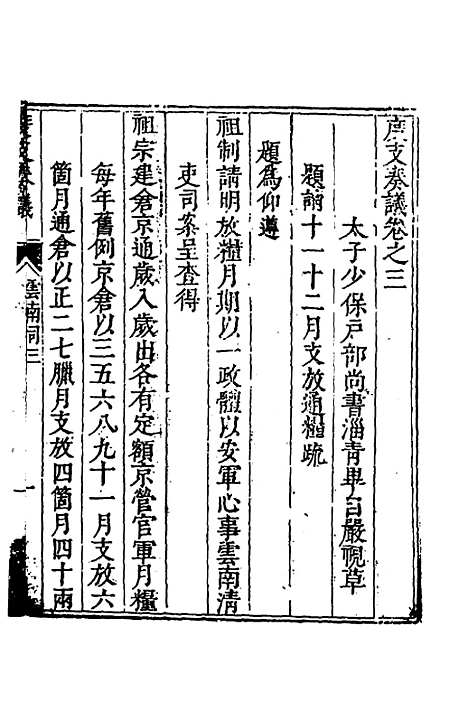 度支奏議卷之三
太子少保戶部尚書淄青畢自嚴視草
題請十一十二月支放通糧疏
題爲仰遵
祖制請明放糧月期以一政體以安軍心事雲南清
吏司案呈查得
祖宗建倉京通歲入歲出各有定額京營官軍月糧
每年舊例京倉以三五六八九十一月支放六
箇月通倉以正二七臘月支放四箇月四十兩
度支奏議
雲南司三
一